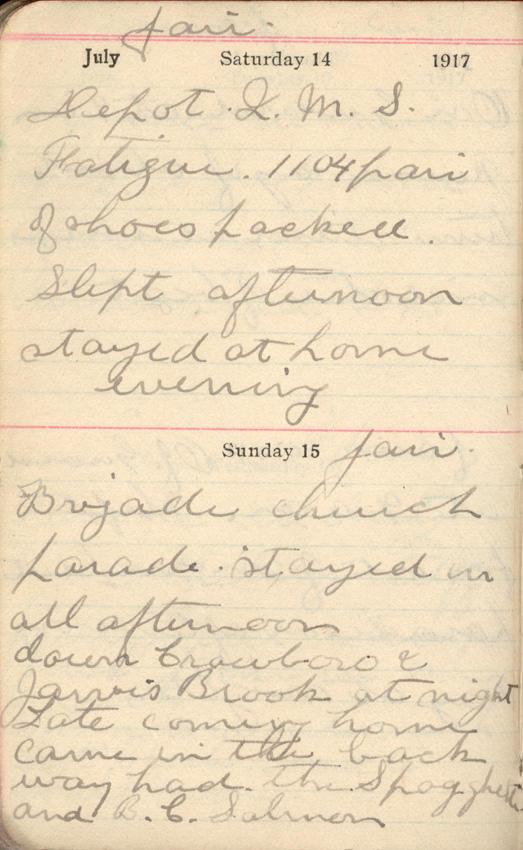 fair.
July Saturday 14 1917
Depot Q. M. S.
Fatigue. 1104 pair
of shoes packed.
Slept afternoon
stayed at home
evening
Sunday 15 fair.
Brigade church
parade. stayed in
all afternoon
down Crowboro &
Jarvis Brook at night
Late coming home
came in the back
way had the Spagghetti
and B. C. Salmon